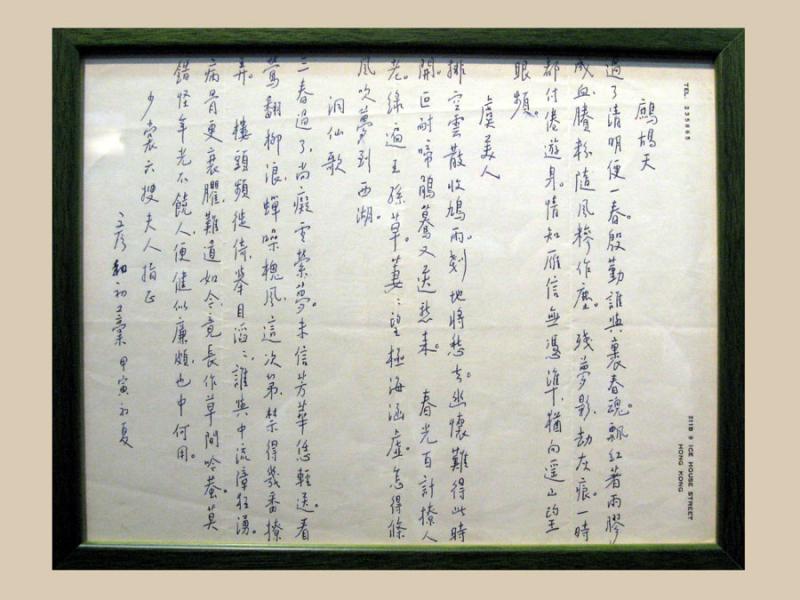 TEL. 235865
ICE HOUSE STREET
HONG KONG
鷓鴣天
過了清明便一春。殷勤誰與裹春魂。飄紅著雨膠
成血賸粉隨風糝作塵。殘夢影、劫灰痕。一時
都付倦遊身。情知雁信無馮準、猶向遥山望
眼頻。
虞美人
排空雲散收鳩雨。剗地將愁去。幽懷難得此時
開。叵耐啼鵑驀又送愁來。 春光百計撩人
老。綠遍王孫草。萋ミ望極海涵虛。怎得條
風吹夢到西湖。
洞仙歌
三春過了、尚癡雲縈夢。未信芳華恁輕送。看
鶯翻柳浪、蟬噪槐風、這次第、禁得幾番撩
弄。 樓頭頻徙倚、舉目滔ミ、誰與中流障狂湧。
病骨更衰癯、難道如今、竟長作草間吟蛬。莫
錯怪年光不饒人、便健似廉頗、也中何用。
少裳六嫂夫人指正
初稾 甲寅初夏